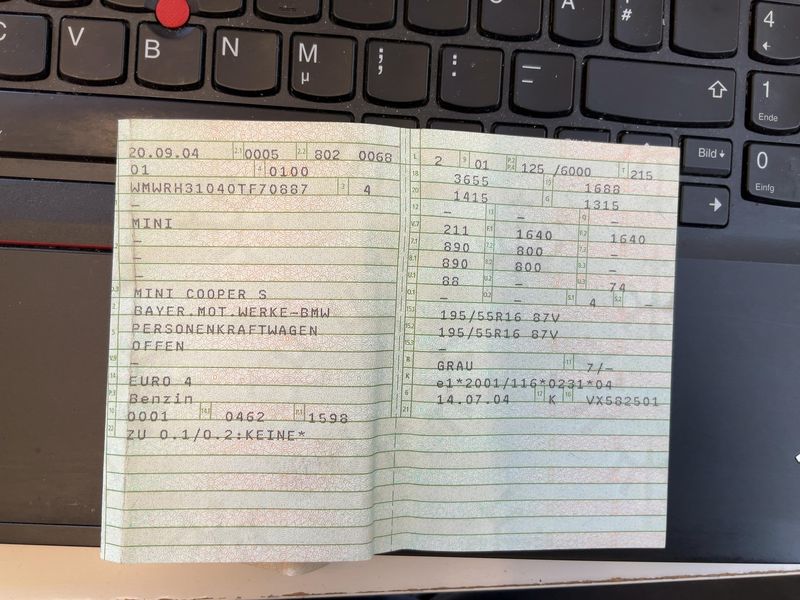 C V B N M µ ; , : . — - # A
4 ←
1 Ende
0 Einfg
Bild ↓
⇧
→
20.09.04 2.1 0005 2.2 802 0068
01 4 0100
WMWRH31040TF70887 3 4
–
MINI
–
–
–
MINI COOPER S
BAYER.MOT.WERKE-BMW
PERSONENKRAFTWAGEN
OFFEN
–
EURO 4
Benzin
0001 14.1 0462 P.1 1598
ZU O.1/O.2:KEINE*
L 2 9 01 P.2 P.4 125 /6000 T 215
18 3655 19 1688
20 1415 G 1315
12 – 13 – Q –
V.7 211 F.1 1640 F.2 1640
7.1 890 7.2 800 7.3 –
8.1 890 8.2 800 8.3 –
U.1 88 U.2 – U.3 74
O.1 – O.2 – S.1 4 S.2 –
15.1 195/55R16 87V
15.2 195/55R16 87V
15.3 –
R GRAU 11 7/–
K e1*2001/116*0231*04
6 14.07.04 17 K 16 VX582501
21